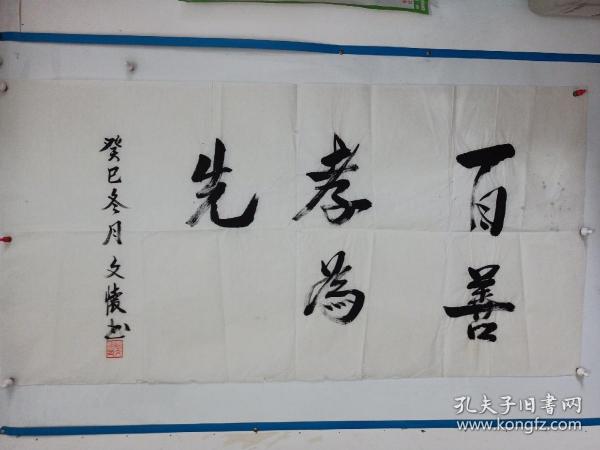 百善
孝為
先
癸巳冬月文陵书
孔夫子旧書网
www.kongfz.com